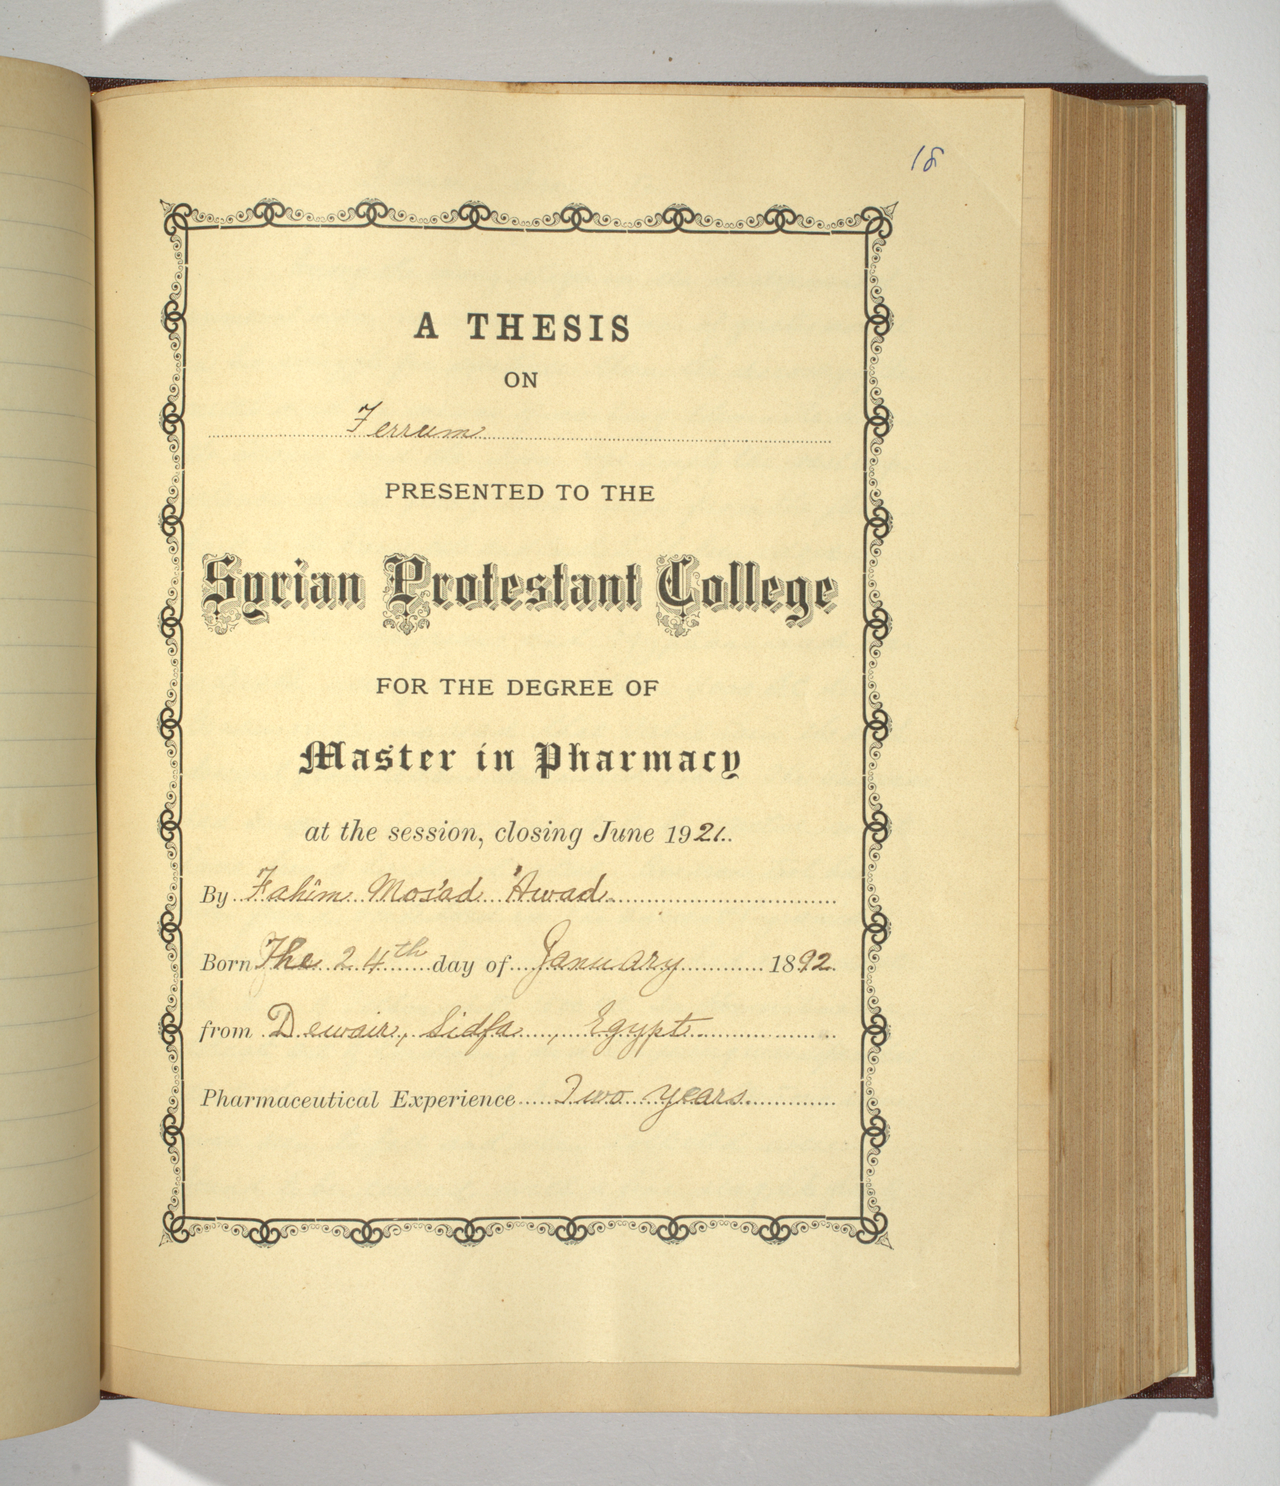 18
A THESIS
ON
Ferrum
PRESENTED TO THE
Syrian Protestant College
FOR THE DEGREE OF
Master in Pharmacy
at the session, closing June 1921.
By Fahîm Mos'ad 'Awad
Born The 24th day of January 1892
from Dewair, Sidfa, Egypt
Pharmaceutical Experience Two years